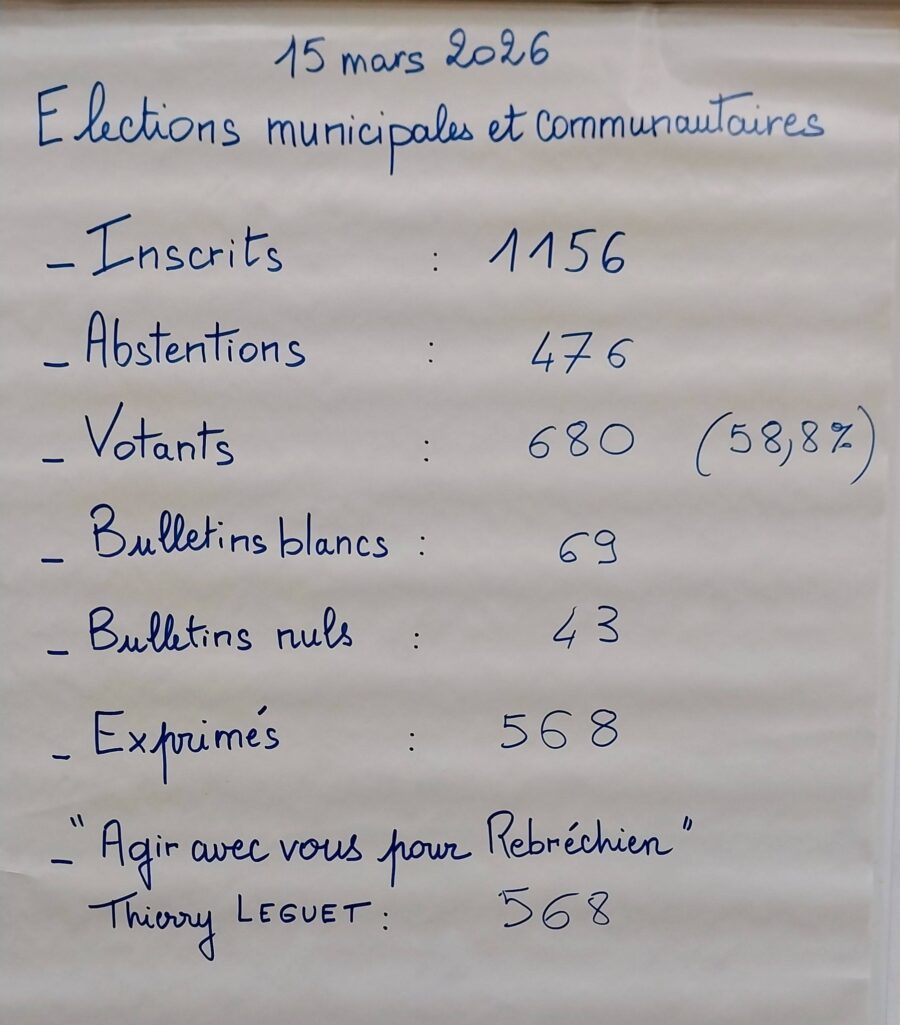 15 mars 2026
Elections municipales et communautaires
- Inscrits : 1156
- Abstentions : 476
- Votants : 680 (58,8%)
- Bulletins blancs : 69
- Bulletins nuls : 43
- Exprimés : 568
- "Agir avec vous pour Rebréchien"
Thierry LEGUET : 568